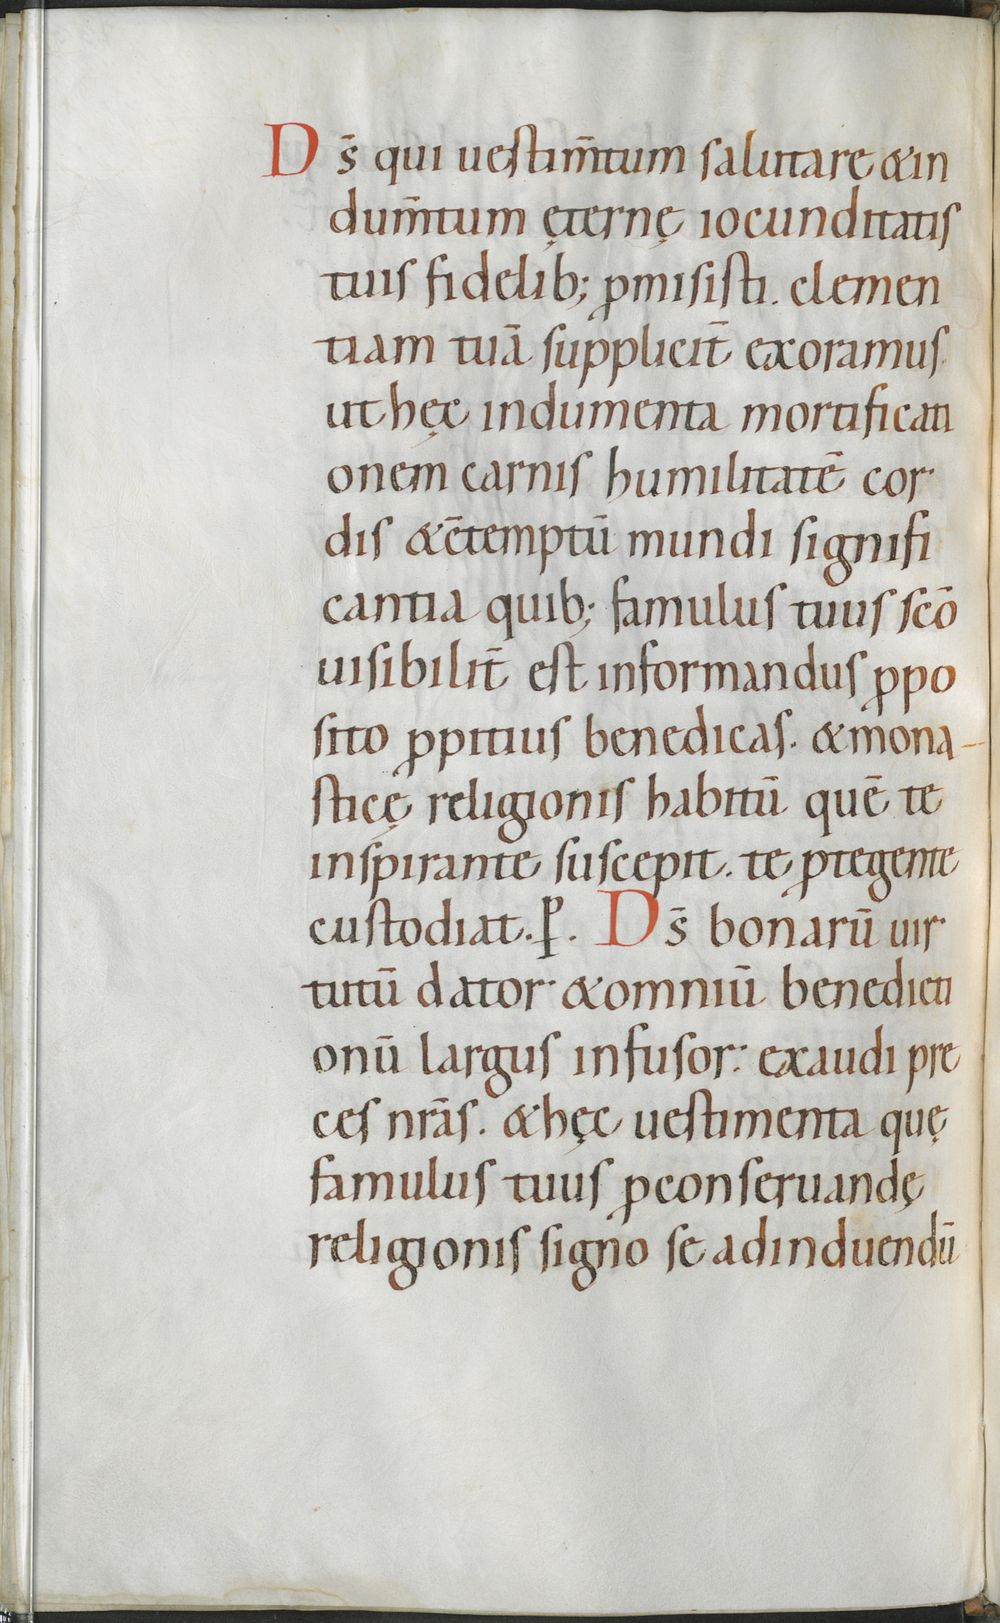 Ds̄ qui uestim̄tum salutare &in
dum̄tum ęternę iocunditatis
tuis fidelib; ꝓmisisti. clemen
tiam tuā supplicit̄ exoramus.
ut hęc indumenta mortificati
onem carnis humilitatē cor
dis &c̄temptū mundi signifi
cantia quib; famulus tuus scō
uisibilit̄ est informandus ꝓpo
sito ꝓpitius benedicas. &mona
sticę religionis habitū quē te
inspirante suscepit. te ꝓtegente
custodiat. P. Ds̄ bonarū uir
tutū dator &omniū benedicti
onū largus infusor: exaudi pre
ces nrā̄s. &hęc uestimenta quę
famulus tuus ꝓconseruandę
religionis signo se adinduendū